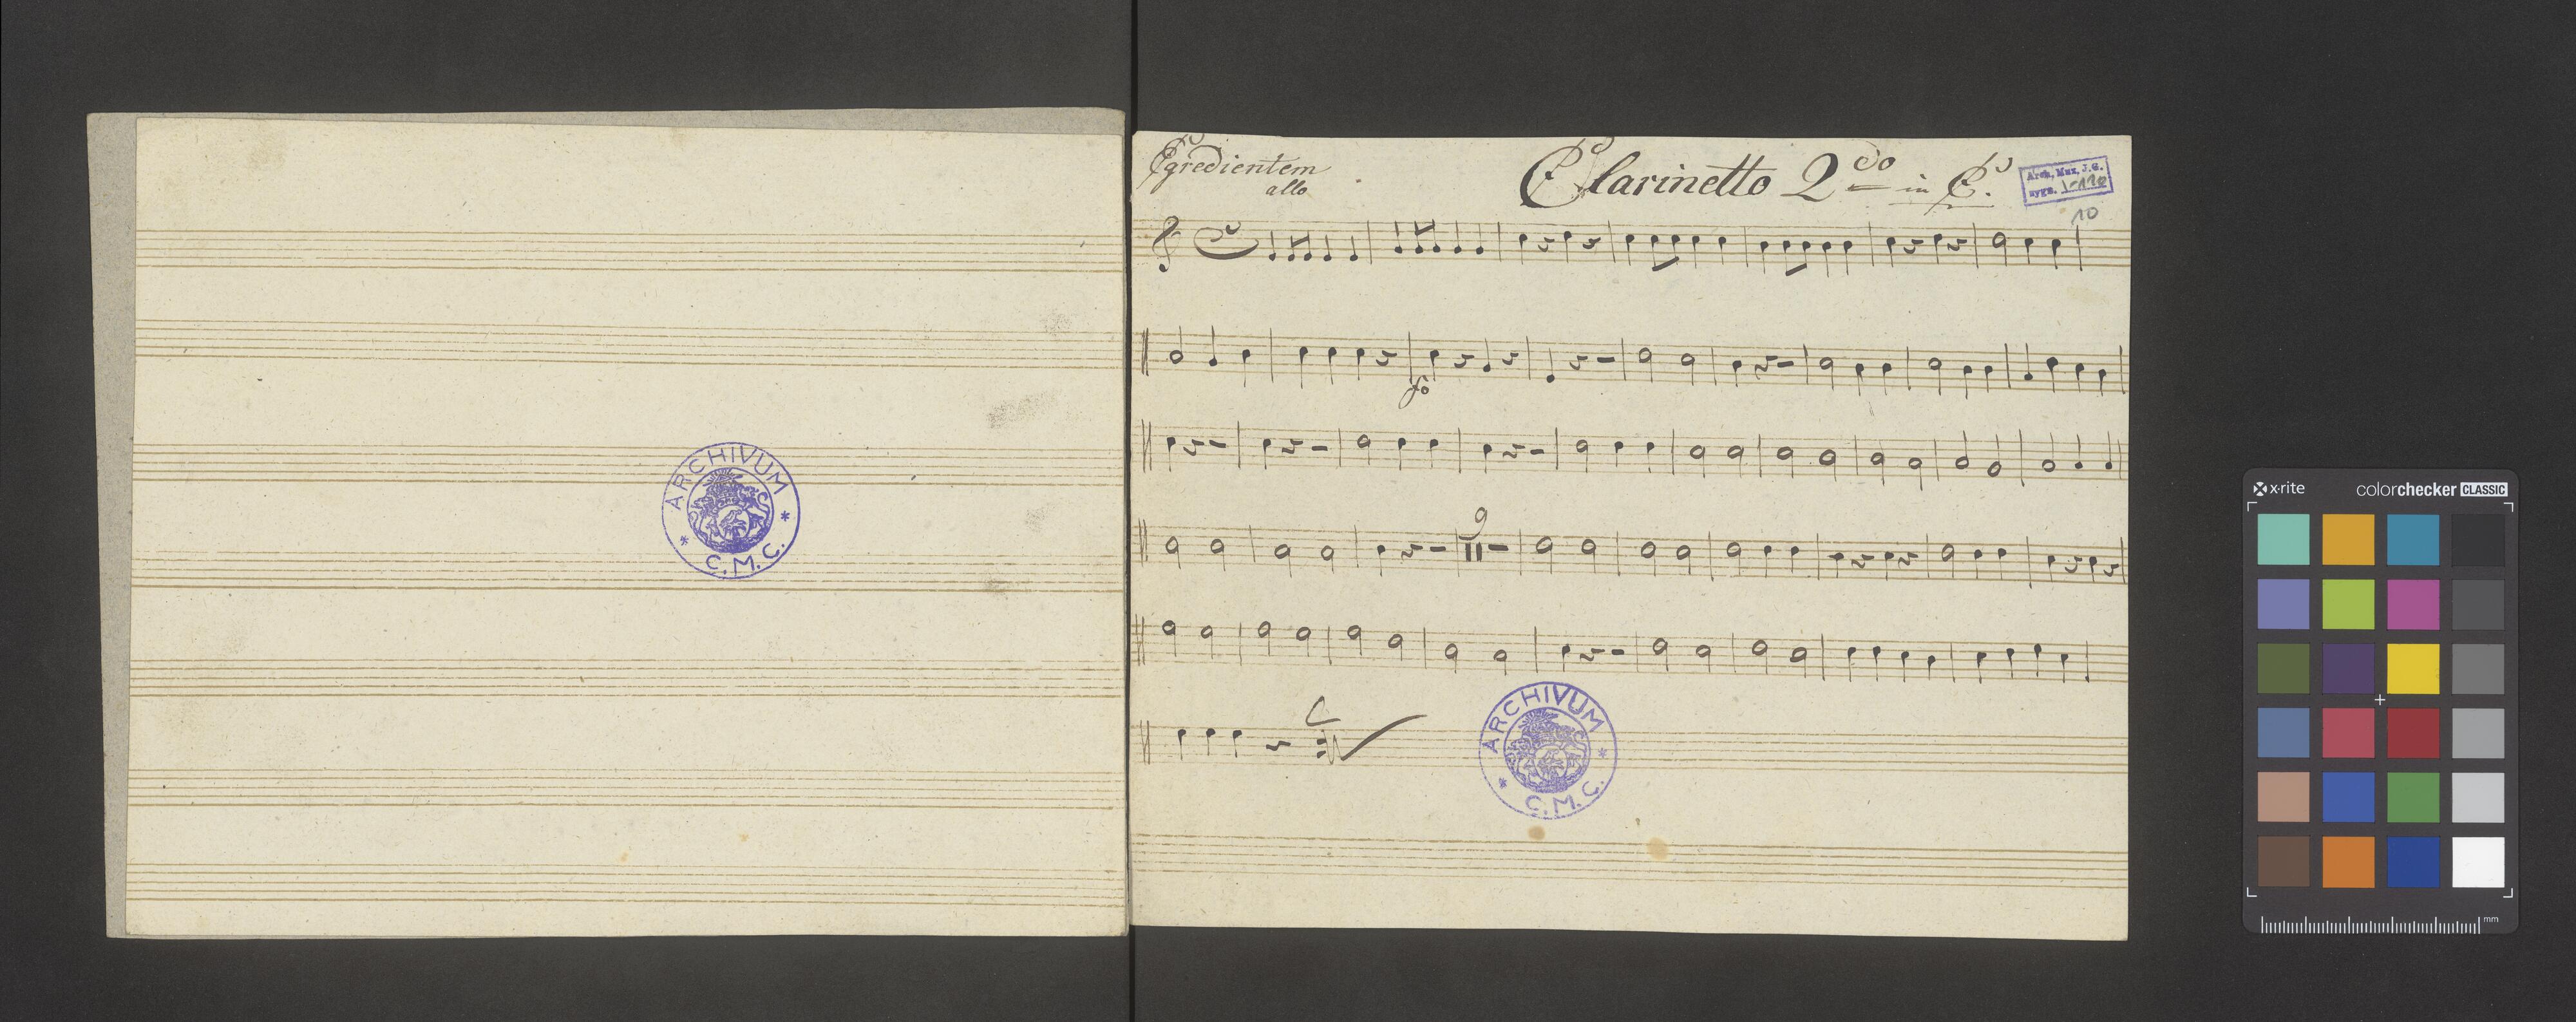 ARCHIVUM
* C.M.C. *
Egredientem
allo
Clarinetto 2do in C.
Arch. Muz. J.G.
sygn. I-120
10
fo
9
ARCHIVUM
* C.M.C. *
x·rite
colorchecker CLASSIC
mm